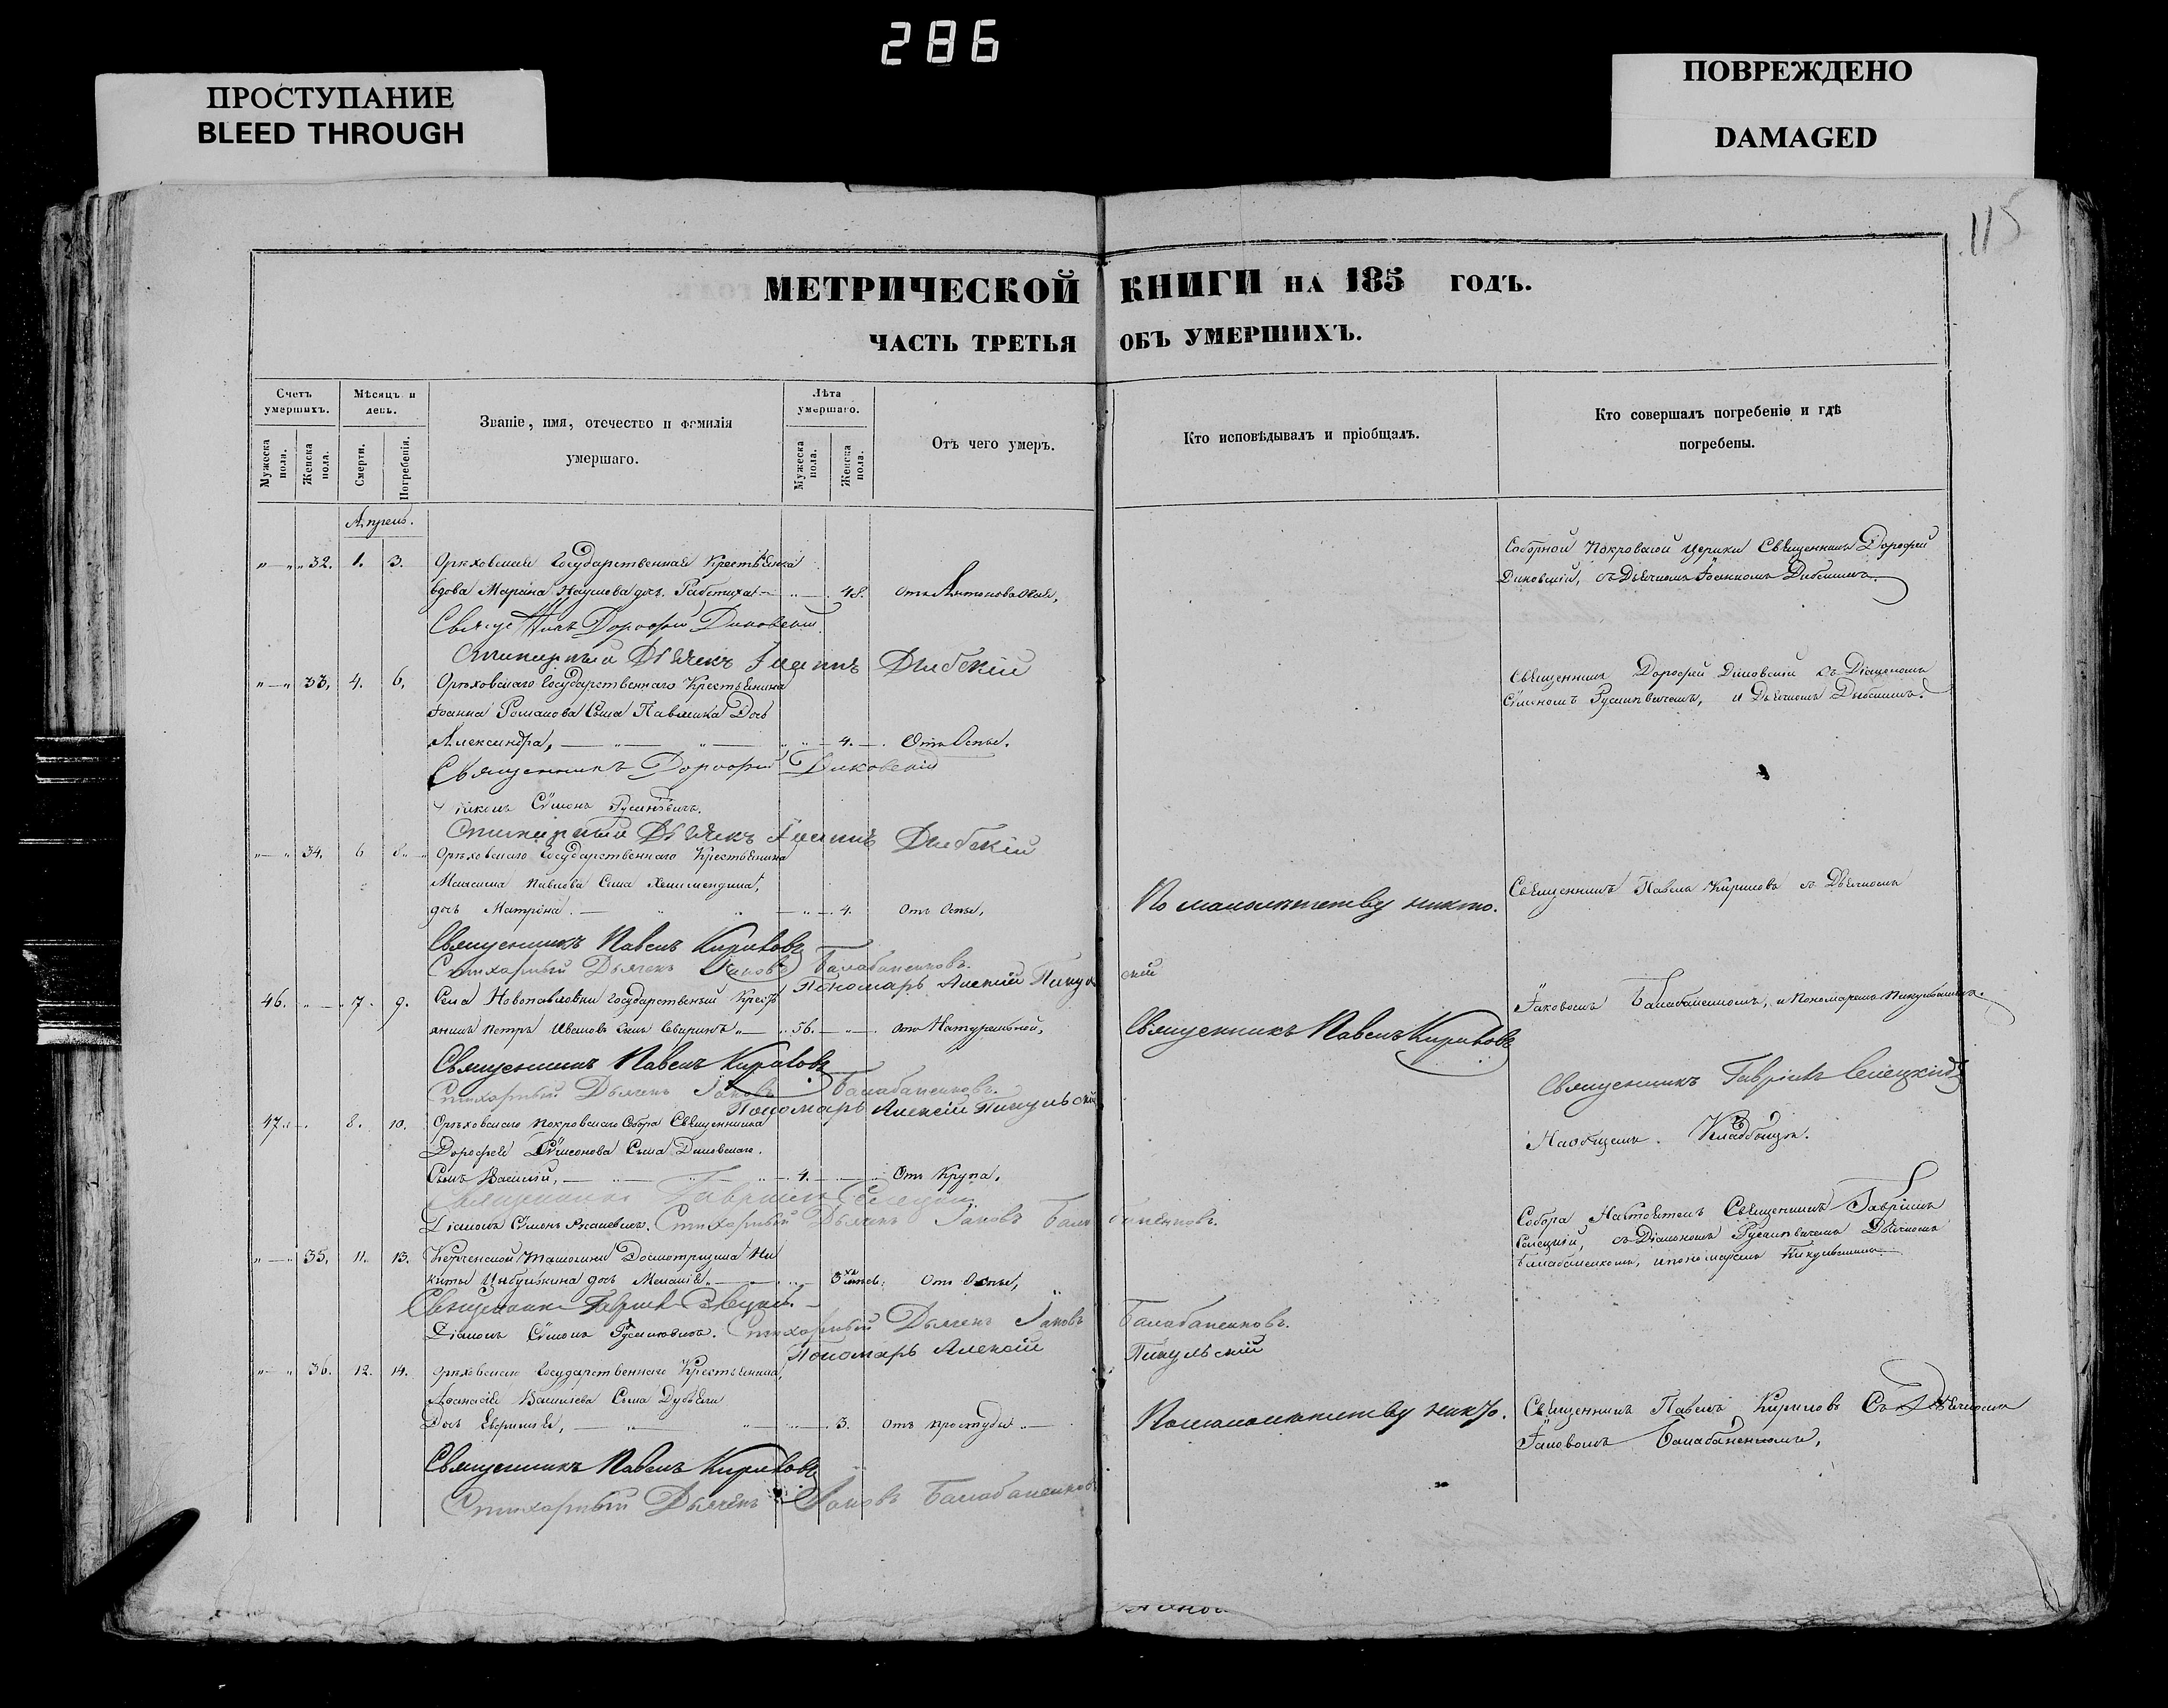 286
ПРОСТУПАНИЕ
BLEED THROUGH
ПОВРЕЖДЕНО
DAMAGED
115
МЕТРИЧЕСКОЙ КНИГИ НА 185 ГОДЪ.
ЧАСТЬ ТРЕТЬЯ ОБЪ УМЕРШИХЪ.
Счетъ умершихъ.
Мужеска пола.
Женска пола.
Мѣсяцъ и день.
Смерти.
Погребенія.
Званіе, имя, отечество и фамилія умершаго.
Лѣта умершаго.
Мужеска пола.
Женска пола.
Отъ чего умеръ.
Кто исповѣдывалъ и пріобщалъ.
Кто совершалъ погребеніе и гдѣ погребены.
Апрель.
32. 1. 3. Орѣховская Государственная Крестьянка
вдова Марина Наумова дочь 48.
Соборной Покровской Церкви Священникъ Дорофей
Диковскій, съ Дьячкомъ Іоанномъ Дыбскимъ
Дорофей Диковскій
Стихарный Дьячекъ Іоаннъ Дыбскій
33. 4. 6. Орѣховскаго Государственнаго Крестьянина
Іоанна Романова Сына Павленка Дочь
Александра, 4. Отъ Оспы.
Священникъ Дорофей Диковскій съ Діакономъ
Сѵмономъ и Дьячкомъ Дыбскимъ.
Священникъ Дорофей Диковскій
Діаконъ Сѵмонъ
Стихарный Дьячекъ Іоаннъ Дыбскій
34. 6 8. Орѣховскаго Государственнаго Крестьянина
Максима Павлова Сына
дочь Матрона. 4. Отъ Оспы,
По малолѣтству никто.
Священникъ Павелъ Кириловъ съ Дьячкомъ
Священникъ Павелъ Кириловъ
Стихарный Дьячекъ Іаковъ Балабаненковъ.
Пономарь Алексій Пикульскій
46. 7. 9. Села Новопавловки Государственный Крестьянинъ Петръ Ивановъ сынъ 56. Отъ Натуральной,
Священникъ Павелъ Кириловъ
Іаковомъ Балабаненкомъ, и Пономаремъ Пикульскимъ.
Священникъ Павелъ Кириловъ
Стихарный Дьячекъ Іаковъ Балабаненковъ.
Пономарь Алексій Пикульскій
Священникъ Гавріилъ Селецкій
47. 8. 10. Орѣховскаго Покровскаго Собора Священника
Дорофея Сѵмеонова Сына Диковскаго.
Сынъ Василій, 4. Отъ Крупа.
На общемъ Кладбищѣ.
Священникъ Гавріилъ Селецкій
Діаконъ Сѵмонъ Стихарный Дьячекъ Іаковъ Балабаненковъ.
Собора Настоятель Священникъ Гавріилъ
Селецкій, съ Діакономъ Дьячкомъ
Балабаненкомъ, и пономаремъ Пикульскимъ
35. 11. 13. Керченской Таможни Досмотрщика Никиты Цыбулькина дочь 3 Отъ Оспы,
Священникъ Гавріилъ Селецкій
Діаконъ Сѵмонъ Стихарный Дьячекъ Іаковъ Балабаненковъ.
Пономарь Алексій Пикульскій
36. 12. 14. Орѣховскаго Государственнаго Крестьянина,
Аѳанасія Васильева Сына
Дочь 3. Отъ простуды
По малолѣтству никто.
Священникъ Павелъ Кириловъ Съ Дьячкомъ
Іаковомъ Балабаненкомъ,
Священникъ Павелъ Кириловъ
Стихарный Дьячекъ Іаковъ Балабаненковъ